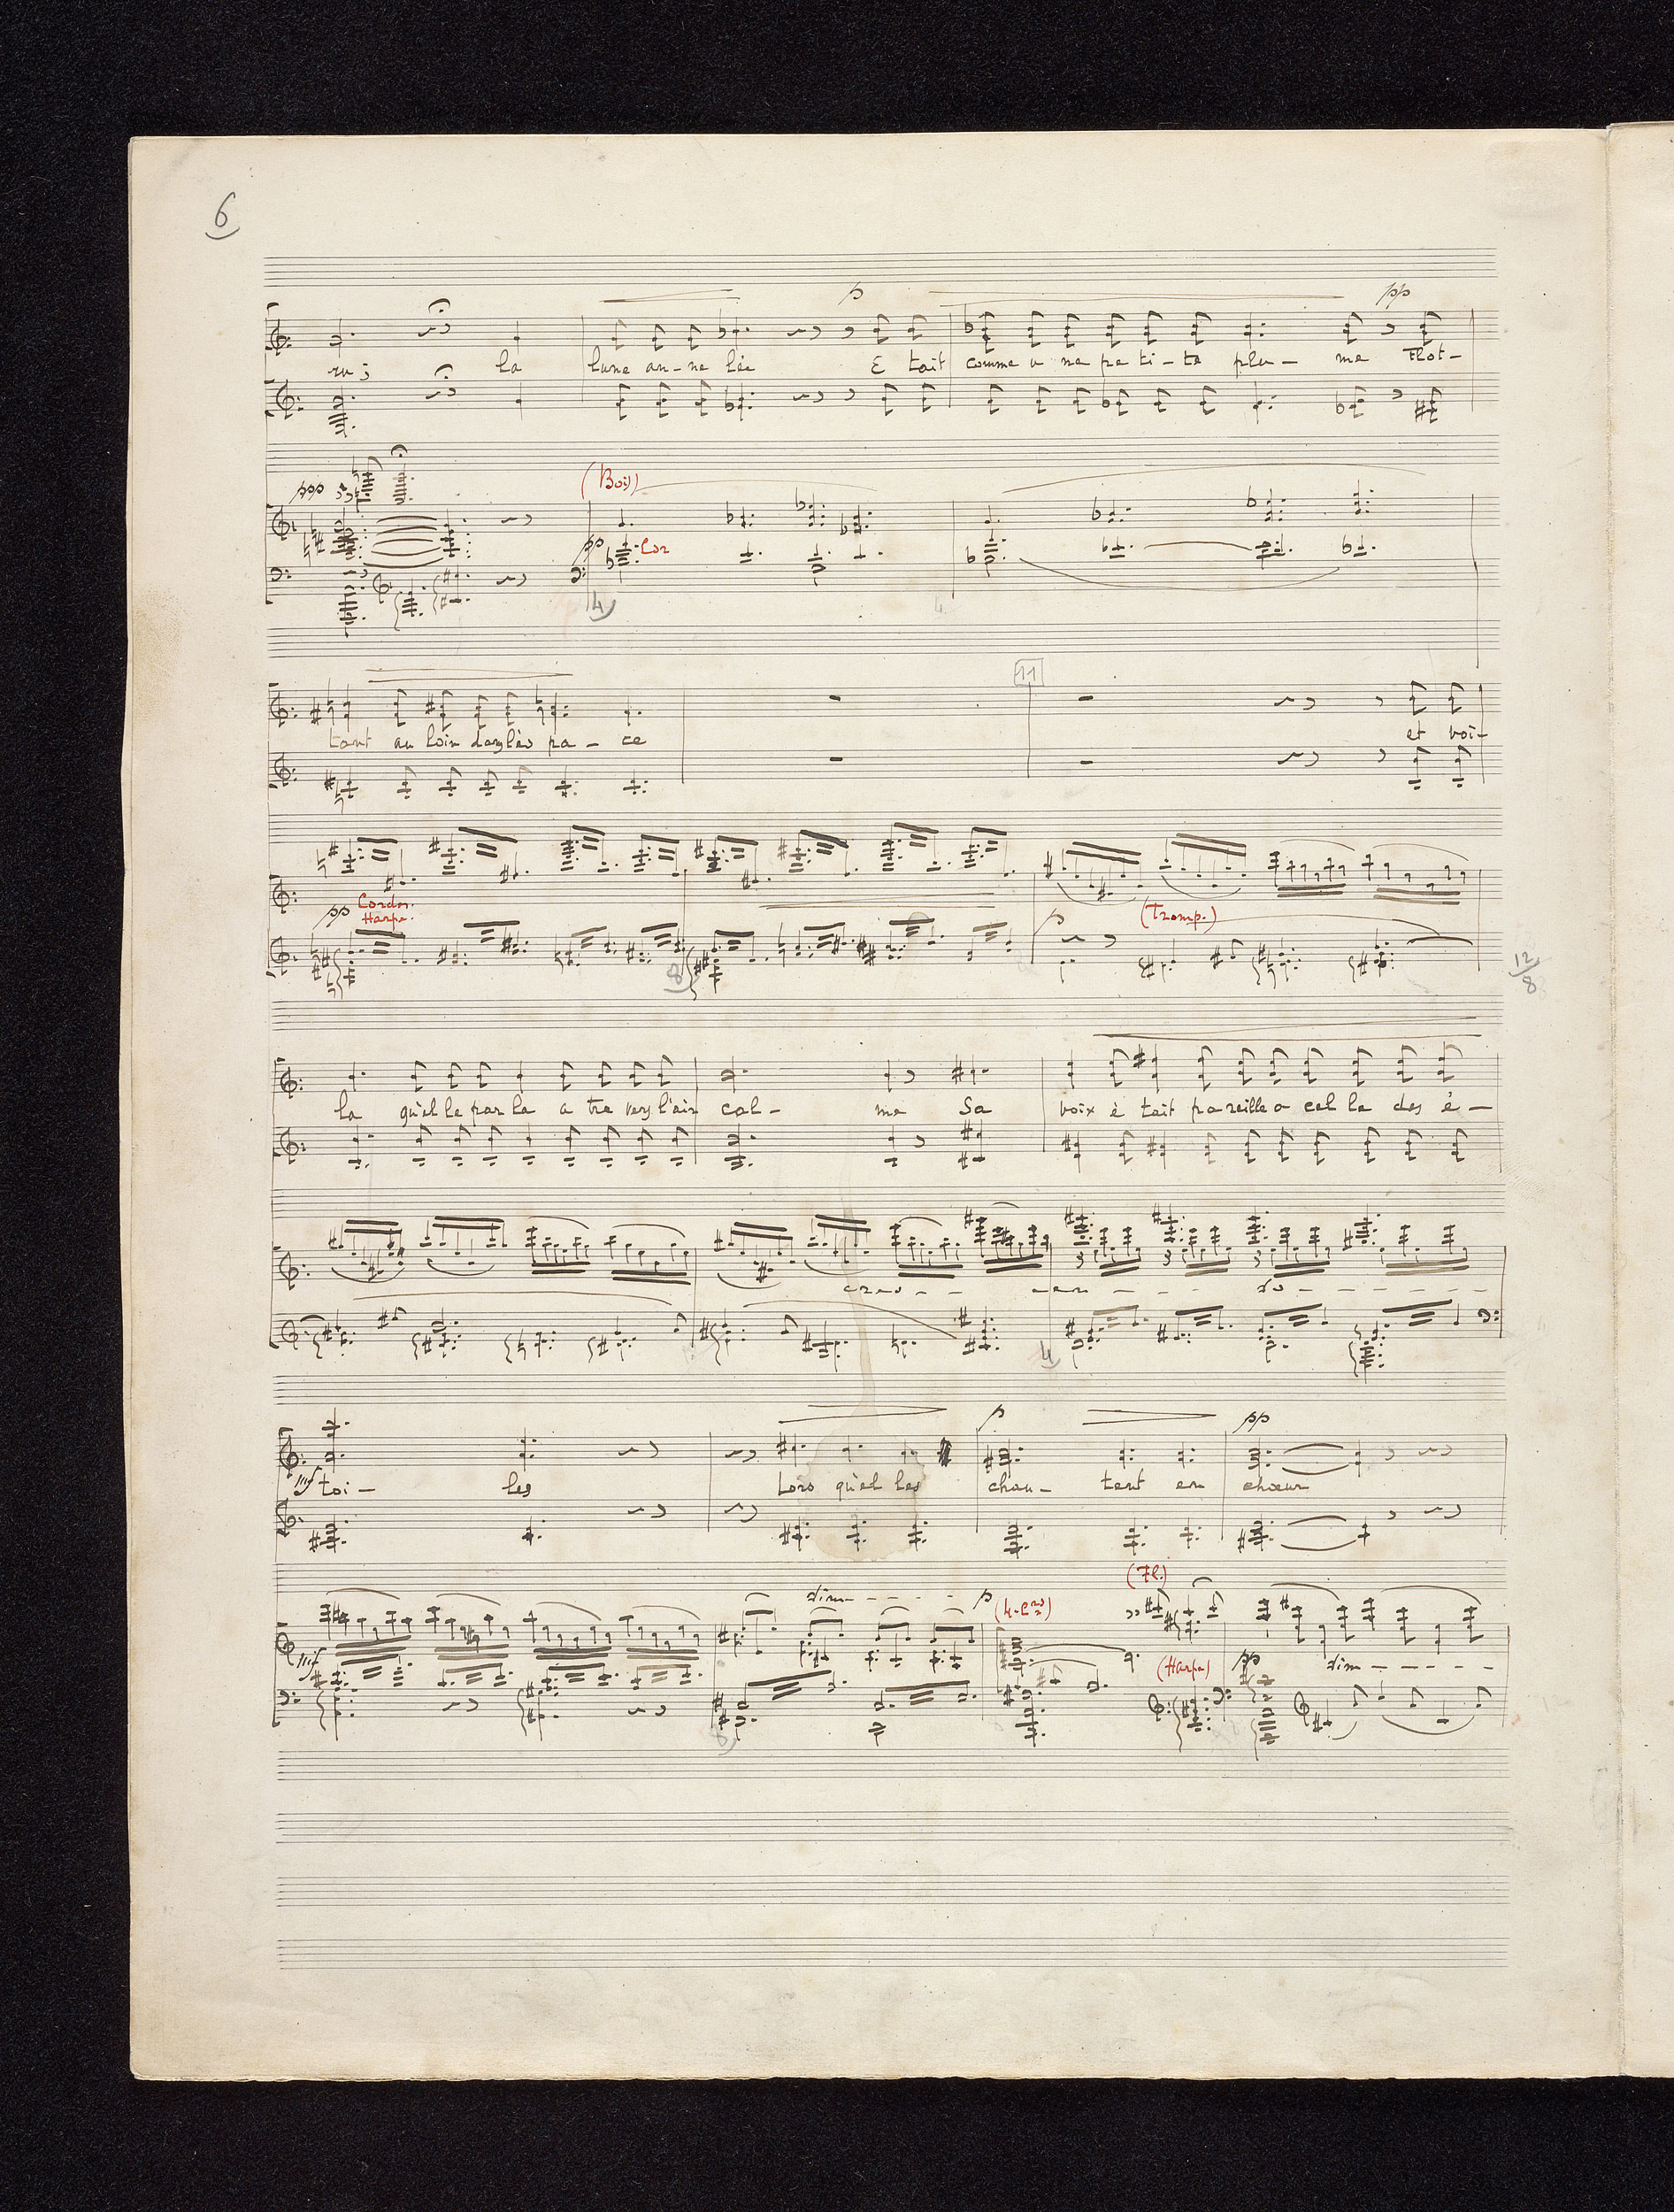 6
p pp
ru; la lune an-ne lée E tait comme u ne pe ti-te plu- me Flot-
ppp (Bois)
pp Cor
4 4
11
tant au loin dans l'es pa- ce et voi-
pp Cordes. p (Tromp.)
Harpe.
8
12
8
la qu'el le par la a tra vers l'air cal- me Sa voix é tait pa reille a cel le des é-
3 3 3
cres - - cen - - - do - - - - - -
4
p pp
mf toi- les Lors qu'el les chan- tent en chœur
(Fl.)
dim - - - - p
mf (Harpe) pp dim - - - - -
6